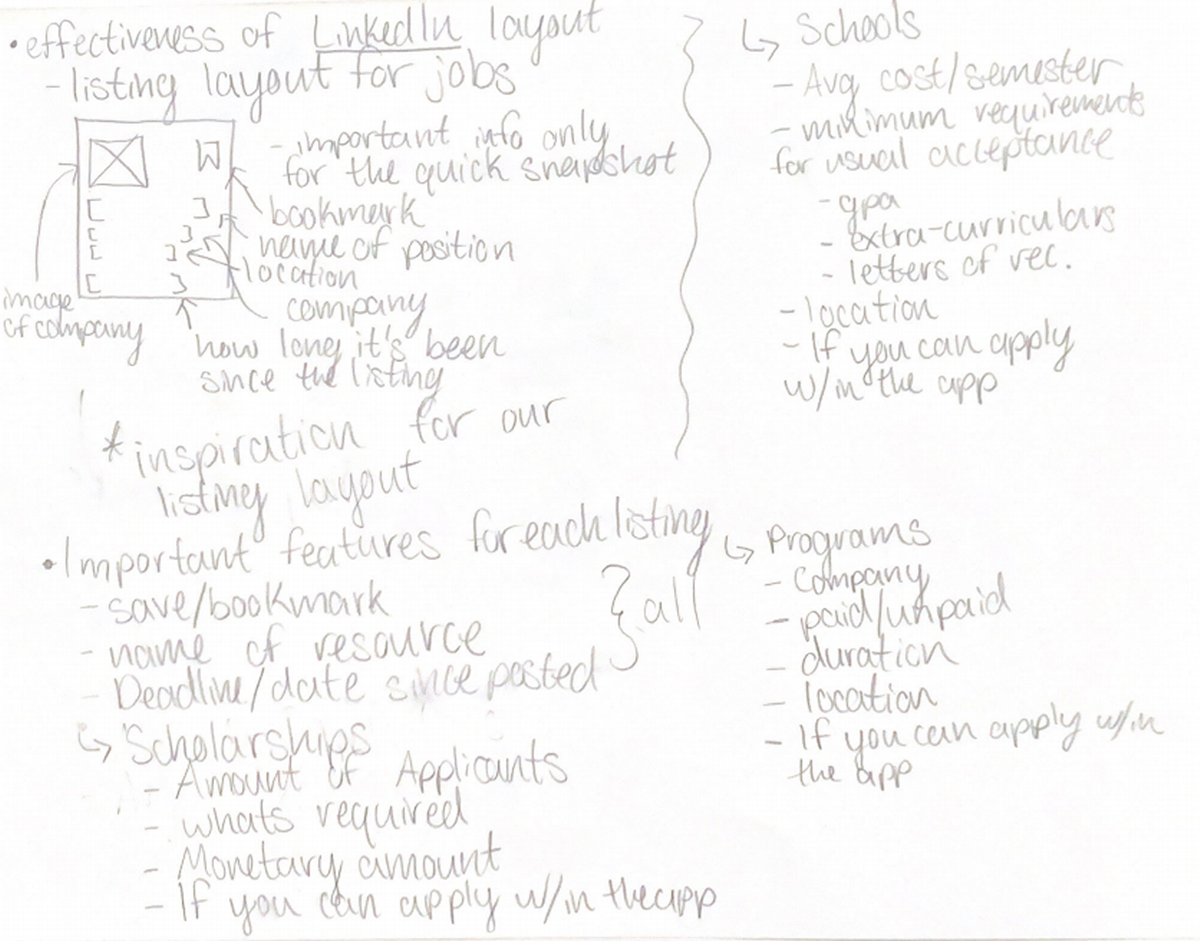 • effectiveness of LinkedIn layout
- listing layout for jobs
- important info only
for the quick snapshot
bookmark
name of position
location
company
image
of company
how long it's been
since the listing
* inspiration for our
listing layout
• Important features for each listing
- save/bookmark
- name of resource
- Deadline/date since posted
} all
↳ Scholarships
- Amount of Applicants
- whats required
- Monetary amount
- If you can apply w/in the app
↳ Schools
- Avg cost/semester
- minimum requirements
for usual acceptance
- gpa
- extra-curriculars
- letters of rec.
- location
- If you can apply
w/in the app
↳ Programs
- Company
- paid/unpaid
- duration
- location
- If you can apply w/in
the app